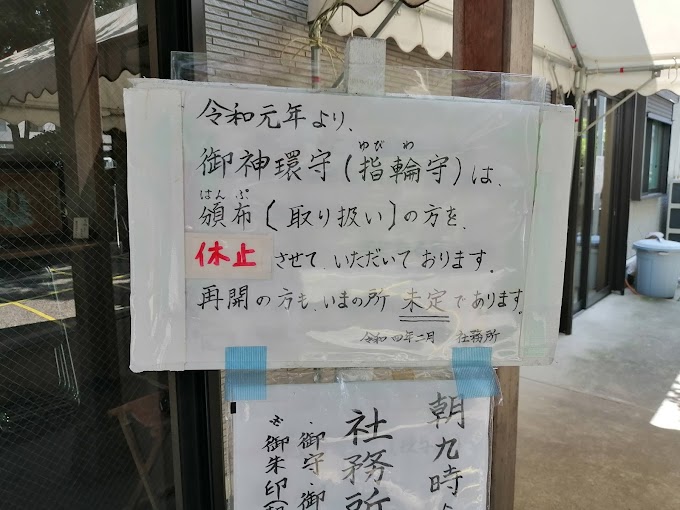 令和元年より、
御神環守(指輪守)は、
ゆびわ
頒布〔取り扱い〕の方を、
はんぷ
休止させて、いただいております。
再開の方も、いまの所 未定であります。
令和四年二月 社務所
朝九時
社務所
・御守・御
御朱印